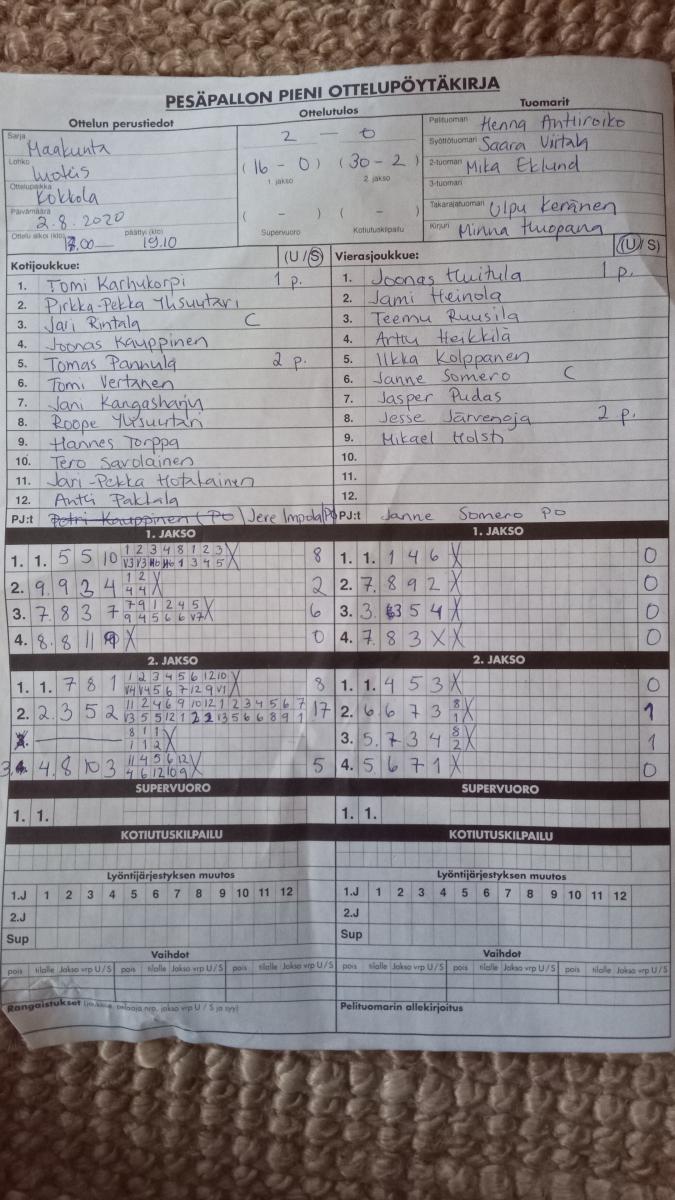 PESÄPALLON PIENI OTTELUPÖYTÄKIRJA
Ottelun perustiedot
Sarja Maakunta
Lohko
Ottelupaikka Kokkola
Päivämäärä 2.8.2020
Ottelu alkoi (klo) .00 päättyi (klo) 19.10
Ottelutulos
2 – 0
(16 – 0) (30 – 2)
1. jakso 2. jakso
( – ) ( – )
Supervuoro Kotiutuskilpailu
Tuomarit
Pelituomari Henna Anttiroiko
Syöttötuomari Saara Virtala
2-tuomari Mika Eklund
3-tuomari
Takarajatuomari Ulpu Keränen
Kirjuri Minna Huopana
Kotijoukkue: (U / S)
1. Tomi Karhukorpi 1 p.
2. Pirkka-Pekka Ylisuutari
3. Jari Rintala C
4. Joonas Kauppinen
5. Tomas Pannula 2 p.
6. Tomi Vertanen
7. Jani Kangasharju
8. Roope Ylisuutari
9. Hannes Torppa
10. Tero Savolainen
11. Jari-Pekka Hotakainen
12. Antti Pakkala
PJ:t Petri Kauppinen (PO) Jere Impola (PO)
Vierasjoukkue: (U / S)
1. Joonas Huitula 1 p.
2. Jami Heinola
3. Teemu Ruusila
4. Arttu Heikkilä
5. Ilkka Kolppanen
6. Janne Somero C
7. Jasper Pudas
8. Jesse Järvenoja 2 p.
9. Mikael Holsti
10.
11.
12.
PJ:t Janne Somero PO
1. JAKSO
1. 1. 5 5 10 1 2 3 4 8 1 2 3 X 8
V3 V3 1 3 4 5
2. 9. 9 3 4 1 2 X 2
4 4
3. 7. 8 3 7 7 9 1 2 4 5 X 6
9 4 5 6 6 V7
4. 8. 8 11 X 0
2. JAKSO
1. 1. 7 8 1 1 2 3 4 5 6 12 10 X 8
V4 V4 5 6 7 12 9 V1
2. 2. 3 5 2 11 2 4 6 9 10 12 1 2 3 4 5 6 7 17
V3 5 5 12 1 2 2 13 5 6 6 8 9 1
8 1 1 X
1 1 2
3. 4. 8 10 3 11 4 5 6 12 X 5
4 6 12 10 9
SUPERVUORO
1. 1.
KOTIUTUSKILPAILU
1. JAKSO
1. 1. 1 4 6 X 0
2. 7. 8 9 2 X 0
3. 3. 3 5 4 X 0
4. 7. 8 3 X X 0
2. JAKSO
1. 1. 4 5 3 X 0
2. 6. 6 7 3 8 X 1
1
3. 5. 7 3 4 8 X 1
2
4. 5. 6 7 1 X 0
SUPERVUORO
1. 1.
KOTIUTUSKILPAILU
Lyöntijärjestyksen muutos
1.J 1 2 3 4 5 6 7 8 9 10 11 12
2.J
Sup
Vaihdot
pois tilalle Jakso vrp U / S pois tilalle Jakso vrp U / S pois tilalle Jakso vrp U / S
Rangaistukset (joukkue, pelaaja nro, jakso vrp U / S ja syy)
Lyöntijärjestyksen muutos
1.J 1 2 3 4 5 6 7 8 9 10 11 12
2.J
Sup
Vaihdot
pois tilalle Jakso vrp U / S pois tilalle Jakso vrp U / S pois tilalle Jakso vrp U / S
Pelituomarin allekirjoitus